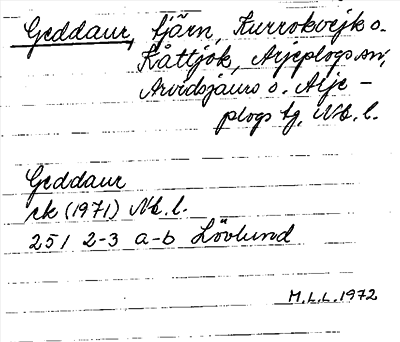 Geddaur, tjärn, Kurrokvejk o.
Kåttjok, Arjeplogs sn,
Arvidsjaurs o. Arje-
plogs tg, Nb. l.
Geddaur
rk (1971) Nb. l.
25 I 2-3 a-b Lövlund
M.L.L. 1972